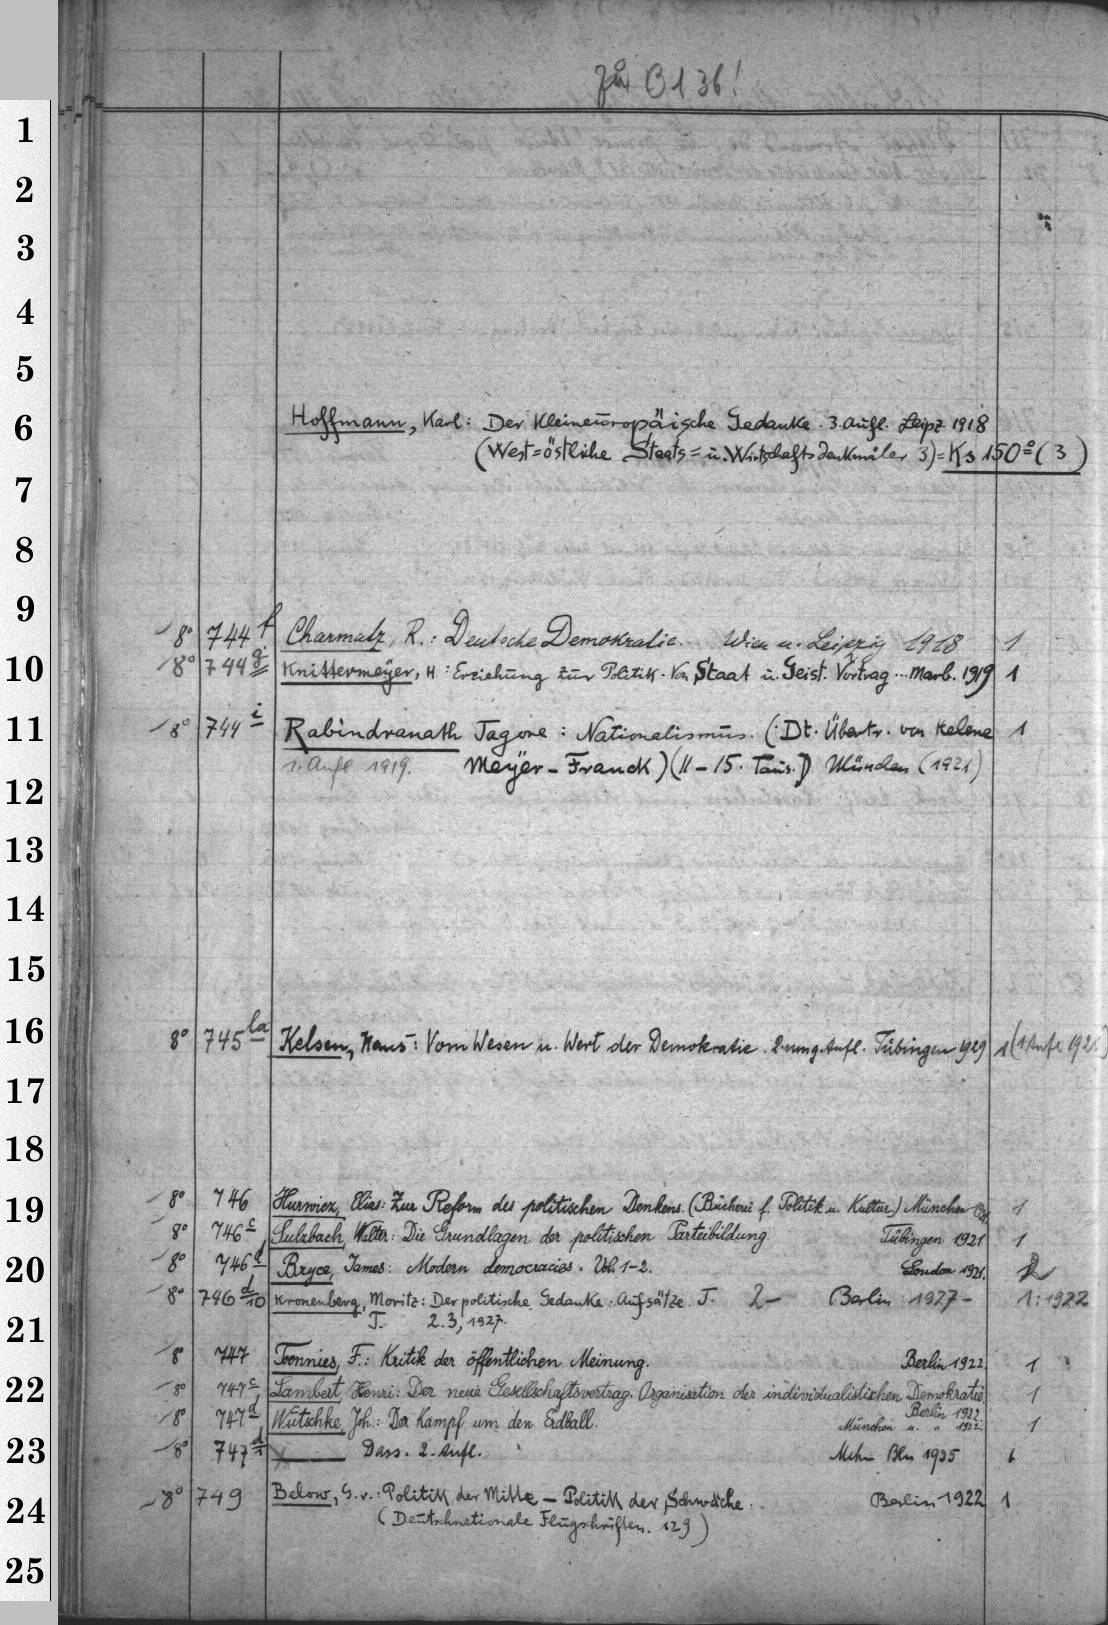 zu B 136!
1
2
3
4
5
6
Hoffmann, Karl: Der Kleineuropäische Gedanke. 3. Aufl. Leipz 1918
(West=östliche Staats= u. Wirtschaftsdenkmäler 3) = Ks 150 8° (3)
7
8
9
8° 744 f Charmatz, R.: Deutsche Demokratie. Wien u. Leipzig 1918 1
10
8° 744 g Knittermeÿer, H: Erziehung zur Politik. Von Staat u. Geist. Vortrag... Marb. 1919 1
11
8° 744 i Rabindranath Tagore: Nationalismus. (Dt. Übertr. von Helene 1
1. Aufl 1919. Meÿer-Franck) (11-15. Taus.) München (1921)
12
13
14
15
16
8° 745 la Kelsen, Hans: Vom Wesen u. Wert der Demokratie. 2. umg. Aufl. Tübingen 1929 1 (1 Aufl 1921)
17
18
19
8° 746 Hurwicz, Elias: Zur Reform des politischen Denkens. (Bücherei f. Politik u. Kultur.) München 1
8° 746 c Sulzbach, Walter: Die Grundlagen der politischen Parteibildung Tübingen 1921 1
20
8° 746 d Bryce, James: Modern democracies. Vol. 1-2. London 1921. 2
8° 746 d/10 Kronenberg, Moritz: Der politische Gedanke. Aufsätze. T. 2- Berlin 1927- 1: 1922
T. 2.3, 1927.
21
8° 747 Toennies, F.: Kritik der öffentlichen Meinung. Berlin 1922 1
22
8° 747 c Lambert, Henri: Der neue Gesellschaftsvertrag. Organisation der individualistischen Demokratie, 1
Berlin 1922
8° 747 d Wütschke, Joh.: Der Kampf um den Erdball. München u. " 1922. 1
23
8° 747 Dass. 2. Aufl. Mchn Bln 1935 6
24
8° 749 Below, G. v.: Politik der Mitte - Politik der Schwäche. Berlin 1922 1
(Deutschnationale Flugschriften. 129)
25